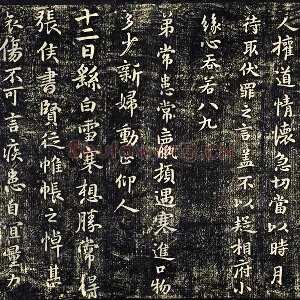 人擁道情懷急切當以時月
待取伏罪之言蓋不以疑相府小
緣心吞若八九
弟常患常羸頓遇寒進口物
多少新婦動止仰人
十二日繇白雪寒想勝常得
張侯書賢從帷帳之悼甚
哀傷不可言疾患自宜量力